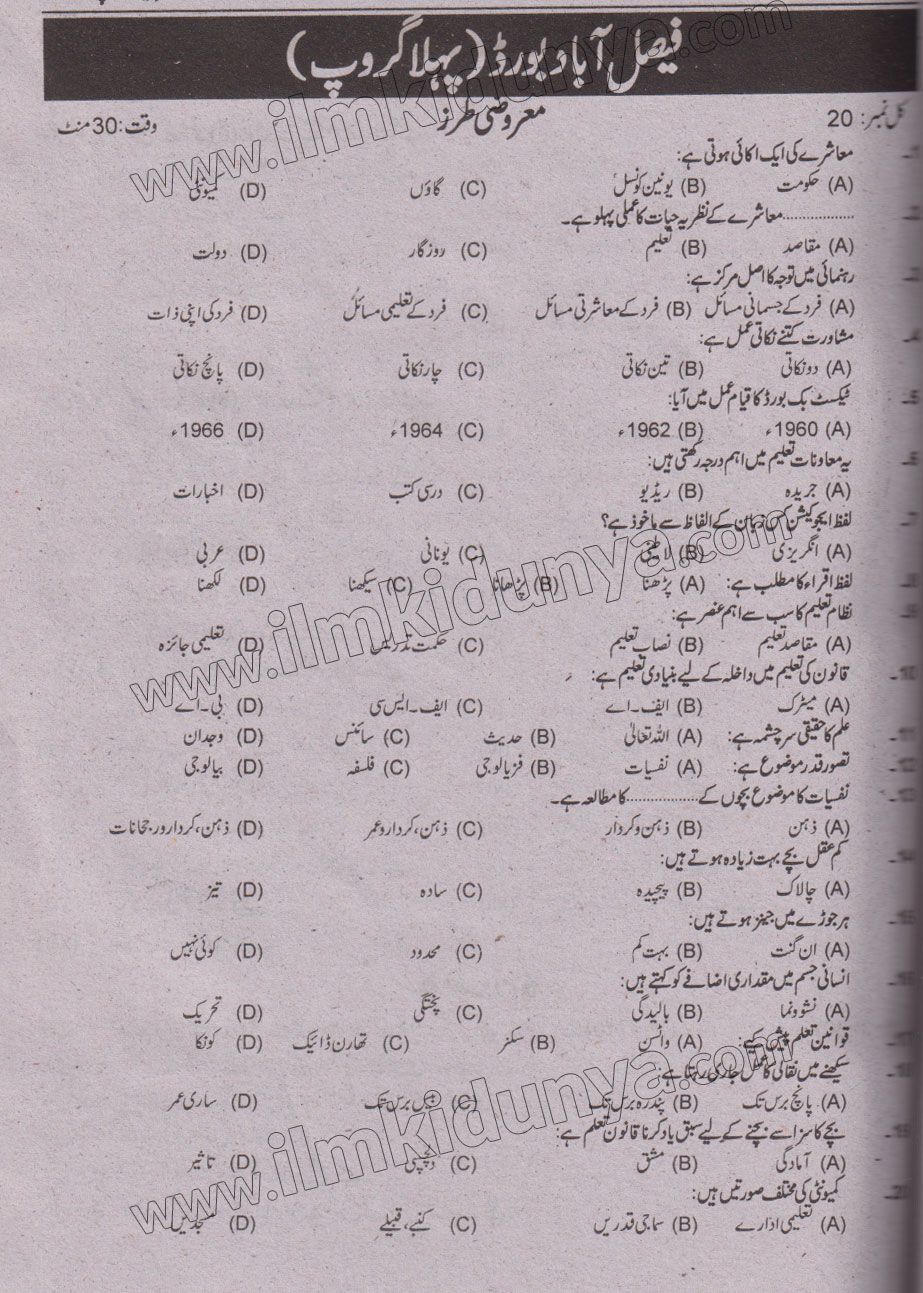 فیصل آباد بورڈ (پہلا گروپ)
کل نمبر: 20 معروضی طرز وقت: 30 منٹ
معاشرے کی ایک اکائی ہوتی ہے:
(A) حکومت (B) یونین کونسل (C) گاؤں (D) کمیونٹی
................معاشرے کے نظریہ حیات کا عملی پہلو ہے۔
(A) مقاصد (B) تعلیم (C) روزگار (D) دولت
رہنمائی میں توجہ کا اصل مرکز ہے:
(A) فرد کے جسمانی مسائل (B) فرد کے معاشرتی مسائل (C) فرد کے تعلیمی مسائل (D) فرد کی اپنی ذات
مشاورت کتنے نکاتی عمل ہے:
(A) دو نکاتی (B) تین نکاتی (C) چار نکاتی (D) پانچ نکاتی
ٹیکسٹ بک بورڈ کا قیام عمل میں آیا:
(A) 1960ء (B) 1962ء (C) 1964ء (D) 1966ء
یہ معاونات تعلیم میں اہم درجہ رکھتی ہیں:
(A) جریدہ (B) ریڈیو (C) درسی کتب (D) اخبارات
لفظ ایجوکیشن کس زبان کے الفاظ سے ماخوذ ہے؟
(A) انگریزی (B) لاطینی (C) یونانی (D) عربی
لفظ اقراء کا مطلب ہے: (A) پڑھنا (B) پڑھانا (C) سیکھنا (D) لکھنا
نظام تعلیم کا سب سے اہم عنصر ہے:
(A) مقاصد تعلیم (B) نصاب تعلیم (C) حکمت تدریس (D) تعلیمی جائزہ
10۔ قانون کی تعلیم میں داخلہ کے لیے بنیادی تعلیم ہے:
(A) میٹرک (B) ایف۔اے (C) ایف۔ایس سی (D) بی۔اے
11۔ علم کا حقیقی سرچشمہ ہے: (A) اللہ تعالیٰ (B) حدیث (C) سائنس (D) وجدان
12۔ تصور قدر موضوع ہے: (A) نفسیات (B) فزیالوجی (C) فلسفہ (D) بیالوجی
13۔ نفسیات کا موضوع بچوں کے................کا مطالعہ ہے۔
(A) ذہن (B) ذہن و کردار (C) ذہن، کردار و عمر (D) ذہن، کردار ور جحانات
14۔ کم عقل بچے بہت زیادہ ہوتے ہیں:
(A) چالاک (B) پیچیدہ (C) سادہ (D) تیز
15۔ ہر جوڑے میں جینز ہوتے ہیں:
(A) ان گنت (B) بہت کم (C) محدود (D) کوئی نہیں
16۔ انسانی جسم میں مقداری اضافے کو کہتے ہیں:
(A) نشوونما (B) بالیدگی (C) پختگی (D) تحریک
17۔ قوانین تعلم پیش کیے: (A) واٹسن (B) سکنر (C) تھارن ڈائیک (D) کونکا
18۔ سیکھنے میں نقالی کا عمل جاری رہتا ہے:
(A) پانچ برس تک (B) پندرہ برس تک (C) تیس برس تک (D) ساری عمر
19۔ بچے کا سزا سے بچنے کے لیے سبق یاد کرنا قانون تعلم ہے:
(A) آمادگی (B) مشق (C) دلچسپی (D) تاثیر
20۔ کمیونٹی کی مختلف صورتیں ہیں:
(A) تعلیمی ادارے (B) سماجی قدریں (C) کنبے، قبیلے (D) مسجدیں
www.ilmkidunya.com
www.ilmkidunya.com
www.ilmkidunya.com